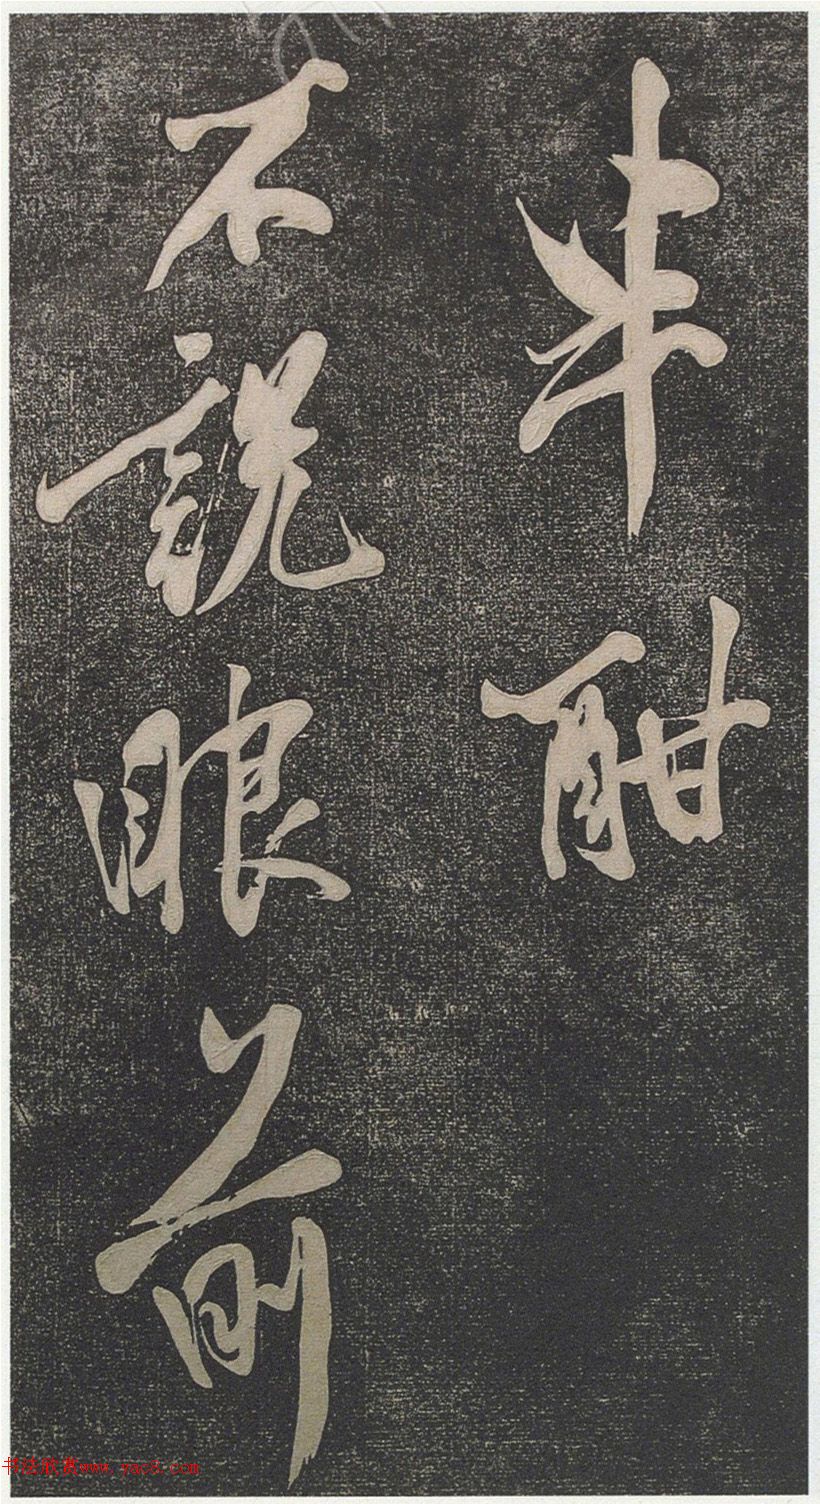 酣
不說眼前
书法欣赏www.yac8.com